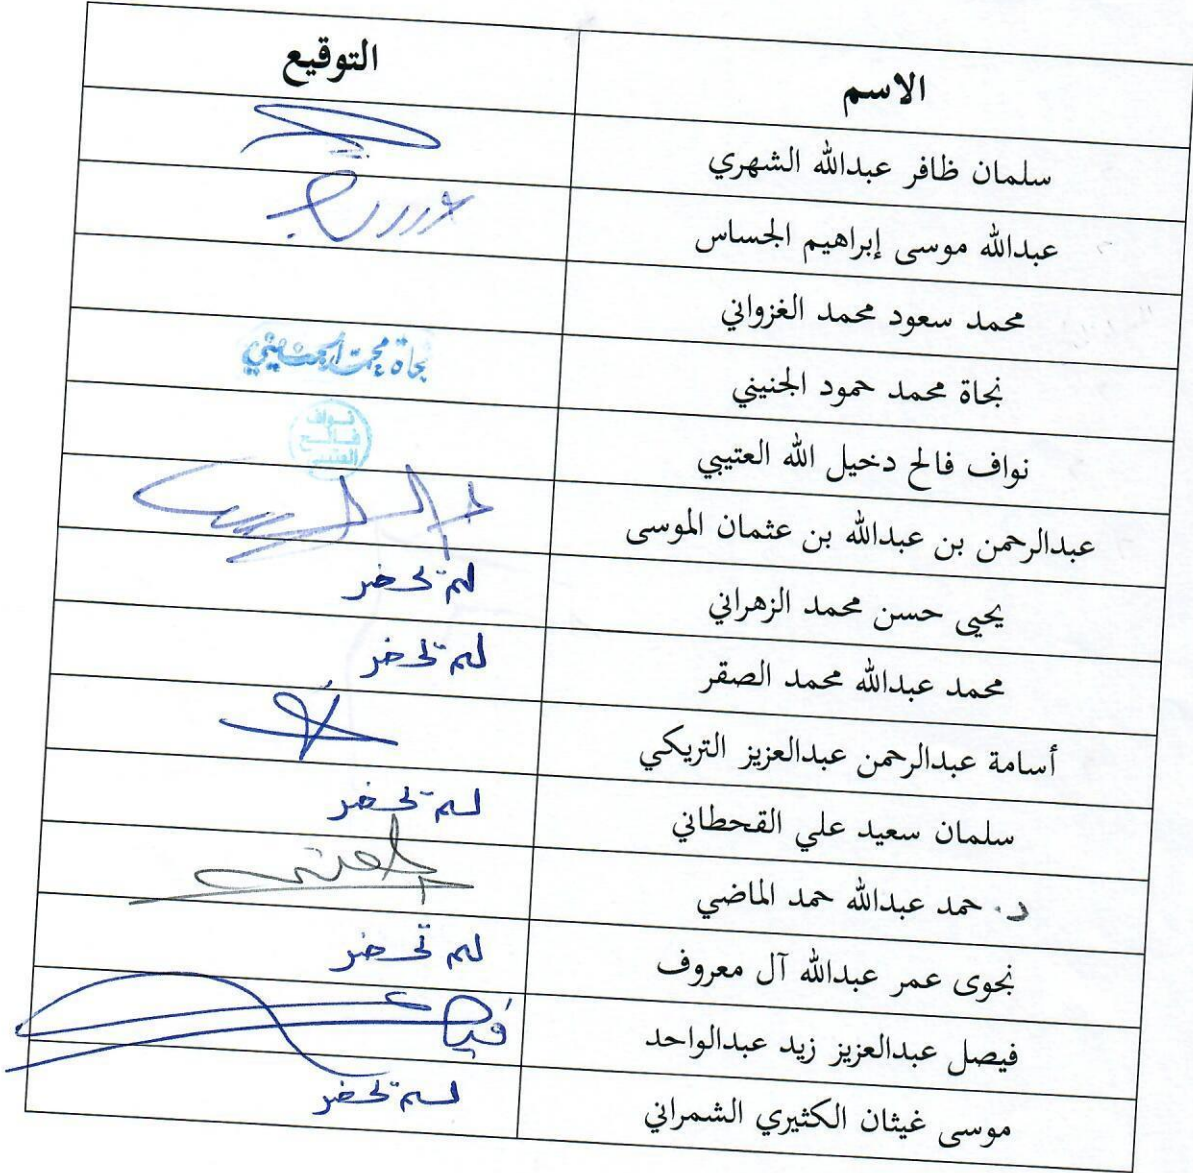 الاسم التوقيع
سلمان ظافر عبدالله الشهري
عبدالله موسى إبراهيم الجساس
محمد سعود محمد الغزواني
نجاة محمد حمود الجنيني نجاة محمد الجنيني
نواف فالح دخيل الله العتيبي نواف
فالح
العتيبي
عبدالرحمن بن عبدالله بن عثمان الموسى
يحيى حسن محمد الزهراني لم تحضر
محمد عبدالله محمد الصقر لم تحضر
أسامة عبدالرحمن عبدالعزيز التريكي
سلمان سعيد علي القحطاني لم تحضر
د. حمد عبدالله حمد الماضي
نجوى عمر عبدالله آل معروف لم تحضر
فيصل عبدالعزيز زيد عبدالواحد
موسى غيثان الكثيري الشمراني لم تحضر